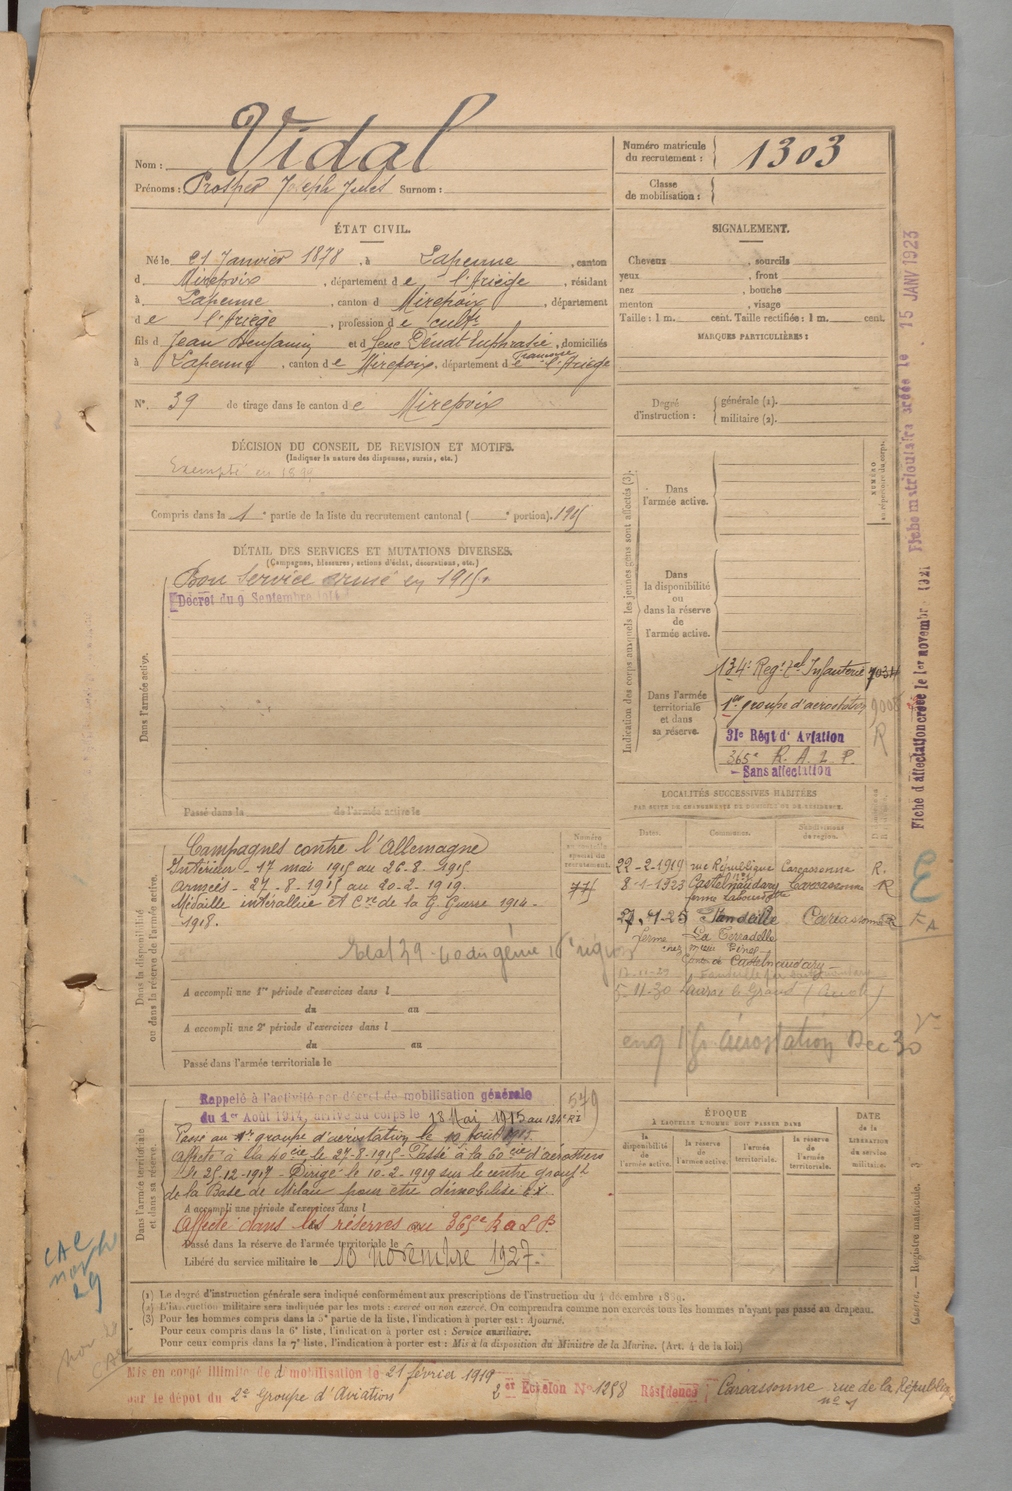 Nom : Vidal
Prénoms : Prosper Joseph Jules Surnom :
Numéro matricule du recrutement : 1303
Classe de mobilisation :
ÉTAT CIVIL.
Né le 21 Janvier 1878, à Lapenne, canton
d Mirepoix, département de l'Ariège, résidant
à Lapenne, canton d Mirepoix, département
de l'Ariège, profession de cultr
fils d Jean Benjamin et d feue Euphrasie, domiciliés
à Lapenne, canton de Mirepoix, département de l'Ariège
N° 39 de tirage dans le canton de Mirepoix
SIGNALEMENT.
Cheveux , sourcils
yeux , front
nez , bouche
menton , visage
Taille : 1 m. cent. Taille rectifiée : 1 m. cent.
MARQUES PARTICULIÈRES :
Degré d'instruction : générale (2).
militaire (2).
DÉCISION DU CONSEIL DE REVISION ET MOTIFS.
(Indiquer la nature des dispenses, sursis, etc.)
Exempté en 1899
Compris dans la 1e partie de la liste du recrutement cantonal ( e portion). 1915
DÉTAIL DES SERVICES ET MUTATIONS DIVERSES.
(Campagnes, blessures, actions d'éclat, décorations, etc.)
Dans l'armée active.
Bon Service armé en 1915.
Décret du 9 Septembre 1914
Passé dans la de l'armée active le
Indication des corps auxquels les jeunes gens sont affectés (3).
NUMÉRO au répertoire du corps.
Dans l'armée active.
Dans la disponibilité ou dans la réserve de l'armée active.
Dans l'armée territoriale et dans sa réserve.
134e Regt d'Infanterie
1er groupe d'aérostation
31e Régt d'Aviation
365e R. A. L. P.
Sans affectation
Fiche matriculaire créée le 15 JANV 1923
Fiche d'affectation créée le 1er novembre 1921
Dans la disponibilité ou dans la réserve de l'armée active.
Campagnes contre l'Allemagne
Intérieur - 17 mai 1915 au 26.8.1915.
armées - 27-8-1915 au 20-2-1919.
Médaille interalliée et Cve de la G. Guerre 1914-
1918.
A accompli une 1re période d'exercices dans l
du au
A accompli une 2e période d'exercices dans l
du au
Passé dans l'armée territoriale le
Numéro spécial du recrutement.
LOCALITÉS SUCCESSIVES HABITÉES
PAR SUITE DE CHANGEMENTS DE DOMICILE OU DE RÉSIDENCE.
Dates. Communes. Subdivisions de région.
22-2-1919 rue République Carcassonne R.
8-1-1923 Castelnaudary Carcassonne R
Carcassonne R
ferme La Terradelle
Castelnaudary
579
Dans l'armée territoriale et dans sa réserve.
Rappelé à l'activité par décret de mobilisation générale
du 1er Août 1914, arrivé au corps le 18 Mai 1915 au 134e RI
Passé au 1er groupe d'aérostation le 10 Août 1915.
Affecté à la 40cie le 27-8-1915 Passé à la 60cie d'aérostiers
le 25-12-1917 - Dirigé le 10-2-1919 sur le centre groupt
de la Base de Milan pour être démobilisé
A accompli une période d'exercices dans l
Affecté dans les réserves au 365e R A L P.
Passé dans la réserve de l'armée territoriale le
Libéré du service militaire le 10 novembre 1927.
ÉPOQUE
À LAQUELLE L'HOMME DOIT PASSER DANS
la disponibilité de l'armée active.
la réserve de l'armée active.
l'armée territoriale.
la réserve de l'armée territoriale.
DATE de la LIBÉRATION du service militaire.
Guerre. — Registre matricule. 3
CAC
29
(1) Le degré d'instruction générale sera indiqué conformément aux prescriptions de l'instruction du 4 décembre 1889.
(2) L'instruction militaire sera indiquée par les mots : exercé ou non exercé. On comprendra comme non exercés tous les hommes n'ayant pas passé au drapeau.
(3) Pour les hommes compris dans la 5e partie de la liste, l'indication à porter est : Ajourné.
Pour ceux compris dans la 6e liste, l'indication à porter est : Service auxiliaire.
Pour ceux compris dans la 7e liste, l'indication à porter est : Mis à la disposition du Ministre de la Marine. (Art. 4 de la loi.)
Mis en congé illimité de démobilisation le 21 février 1919
par le dépôt du 2e Groupe d'Aviation
2er Echelon N° 1258 Résidence : Carcassonne rue de la République
n° 1